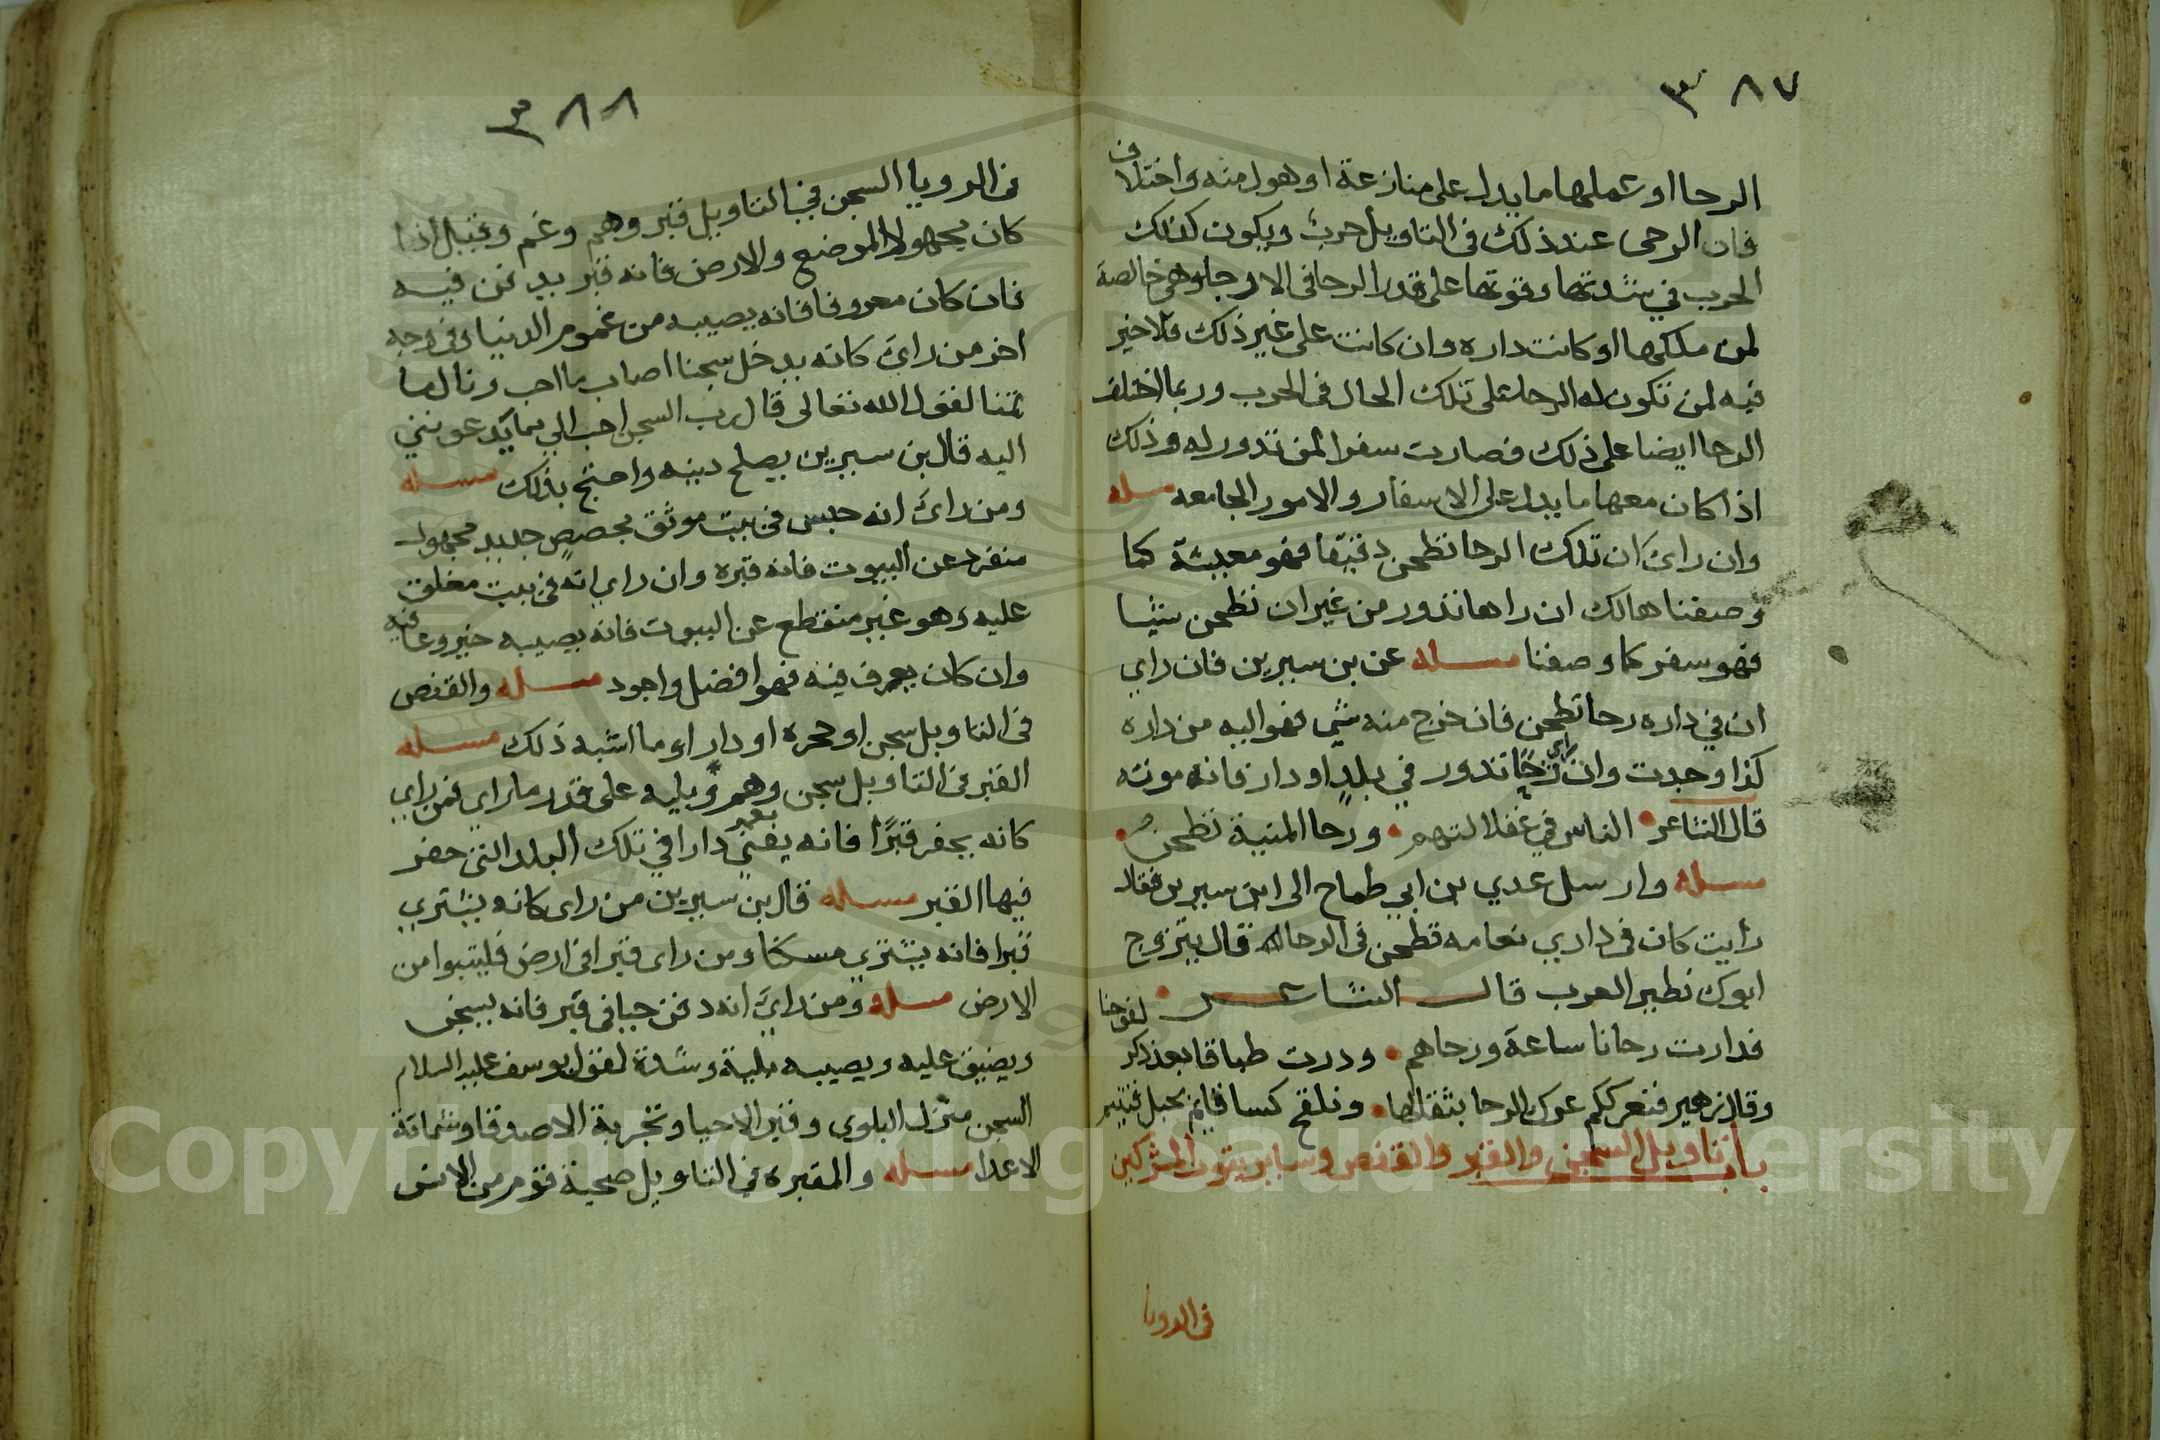 ٣٨٧
الرحا او عملها ما يدل على منازعة او هول منه واختلاف
فان الرحى عند ذلك في التاويل حرب ويكون كذلك
الحرب في شدتها وقوتها على قدر الرحا في الا وهي خالصة
لمن ملكها او كانت داره وان كانت على غير ذلك فلا خير
فيه لمن تكون له الرحا على تلك الحال في الحرب وربما اختلف
الرحا ايضا على ذلك فصارت سفرا لمن تدور له وذلك
اذا كان معها ما يدل على الاسفار والامور الجامعه مسله
وان راى ان تلك الرحا تطحن دقيقا فهو معيشة كما
وصفنا هالك ان راها تدور من غير ان تطحن شيئا
فهو سفر كما وصفنا مسله عن بن سيرين فان راي
ان في داره رحا تطحن فان خرج منه شي فهو اليه من داره
كذا وجدت وان راي رحًا تدور في بلد او دار فانه موته
قال الشاعر الناس في غفلاتهم ورحا المنية تطحن
مسله وارسل عدي بن ابي طماح الى ابن سيرين فقال
رأيت كان في داري نعامه تطحن في الرحا قال يتزوج
ابوك نطير العرب قال الشاعر
فدارت رحانا ساعة ورحاهم ودرت طباقا بعد ذكر لقوحنا
وقال زهير فتعرككم عرك الرحا بثقالها وتلقح كسافا ثم تحبل فتتم
باب تاويل السجن والقبر والقفص وساير بيوت المشركين
في الرويا
٣٨٨
في الرويا السجن في التاويل قبر وهم وغم وقيل اذا
كان مجهولا الموضع والارض فانه قبر يدفن فيه
فان كان معروفا فانه يصيبه من غموم الدنيا وفي وجه
اخر من راى كانه يدخل سجنا اصاب ما احب ونال ما
تمنا لقول الله تعالى قال رب السجن احب الي مما يدعونني
اليه قال بن سيرين يصلح دينه واحتج بذلك مسله
ومن راى انه حبس في بيت موثق مجصص جديد مجهول
منفرد عن البيوت فانه قبره وان راي انه في بيت مغلق
عليه وهو غير منقطع عن البيوت فانه يصيبه خير وعافيه
وان كان يعرف فيه فهو افضل واجود مسله والقفص
في التاويل سجن او حجره او دار او ما اشبه ذلك مسله
القبر في التاويل سجن وهم وبليه على قدر ما راي فمن راي
كانه يحفر قبرًا فانه يعمر دارا في تلك البلد التي حفر
فيها القبر مسله قال بن سيرين من راى كانه يشتري
قبرا فانه يشتري مسكنا ومن راى قبرا في ارض فليتبوا من
الارض مسله ومن راي انه دفن حيا في قبر فانه يسجن
ويضيق عليه ويصيبه بلية وشدة لقول يوسف عليه السلام
السجن منزل البلوي وقبر الاحيا وتجربة الاصدقا وشماتة
الاعدا مسله والمقبره في التاويل صحبة قوم من الانس
Copyright © King Saud University